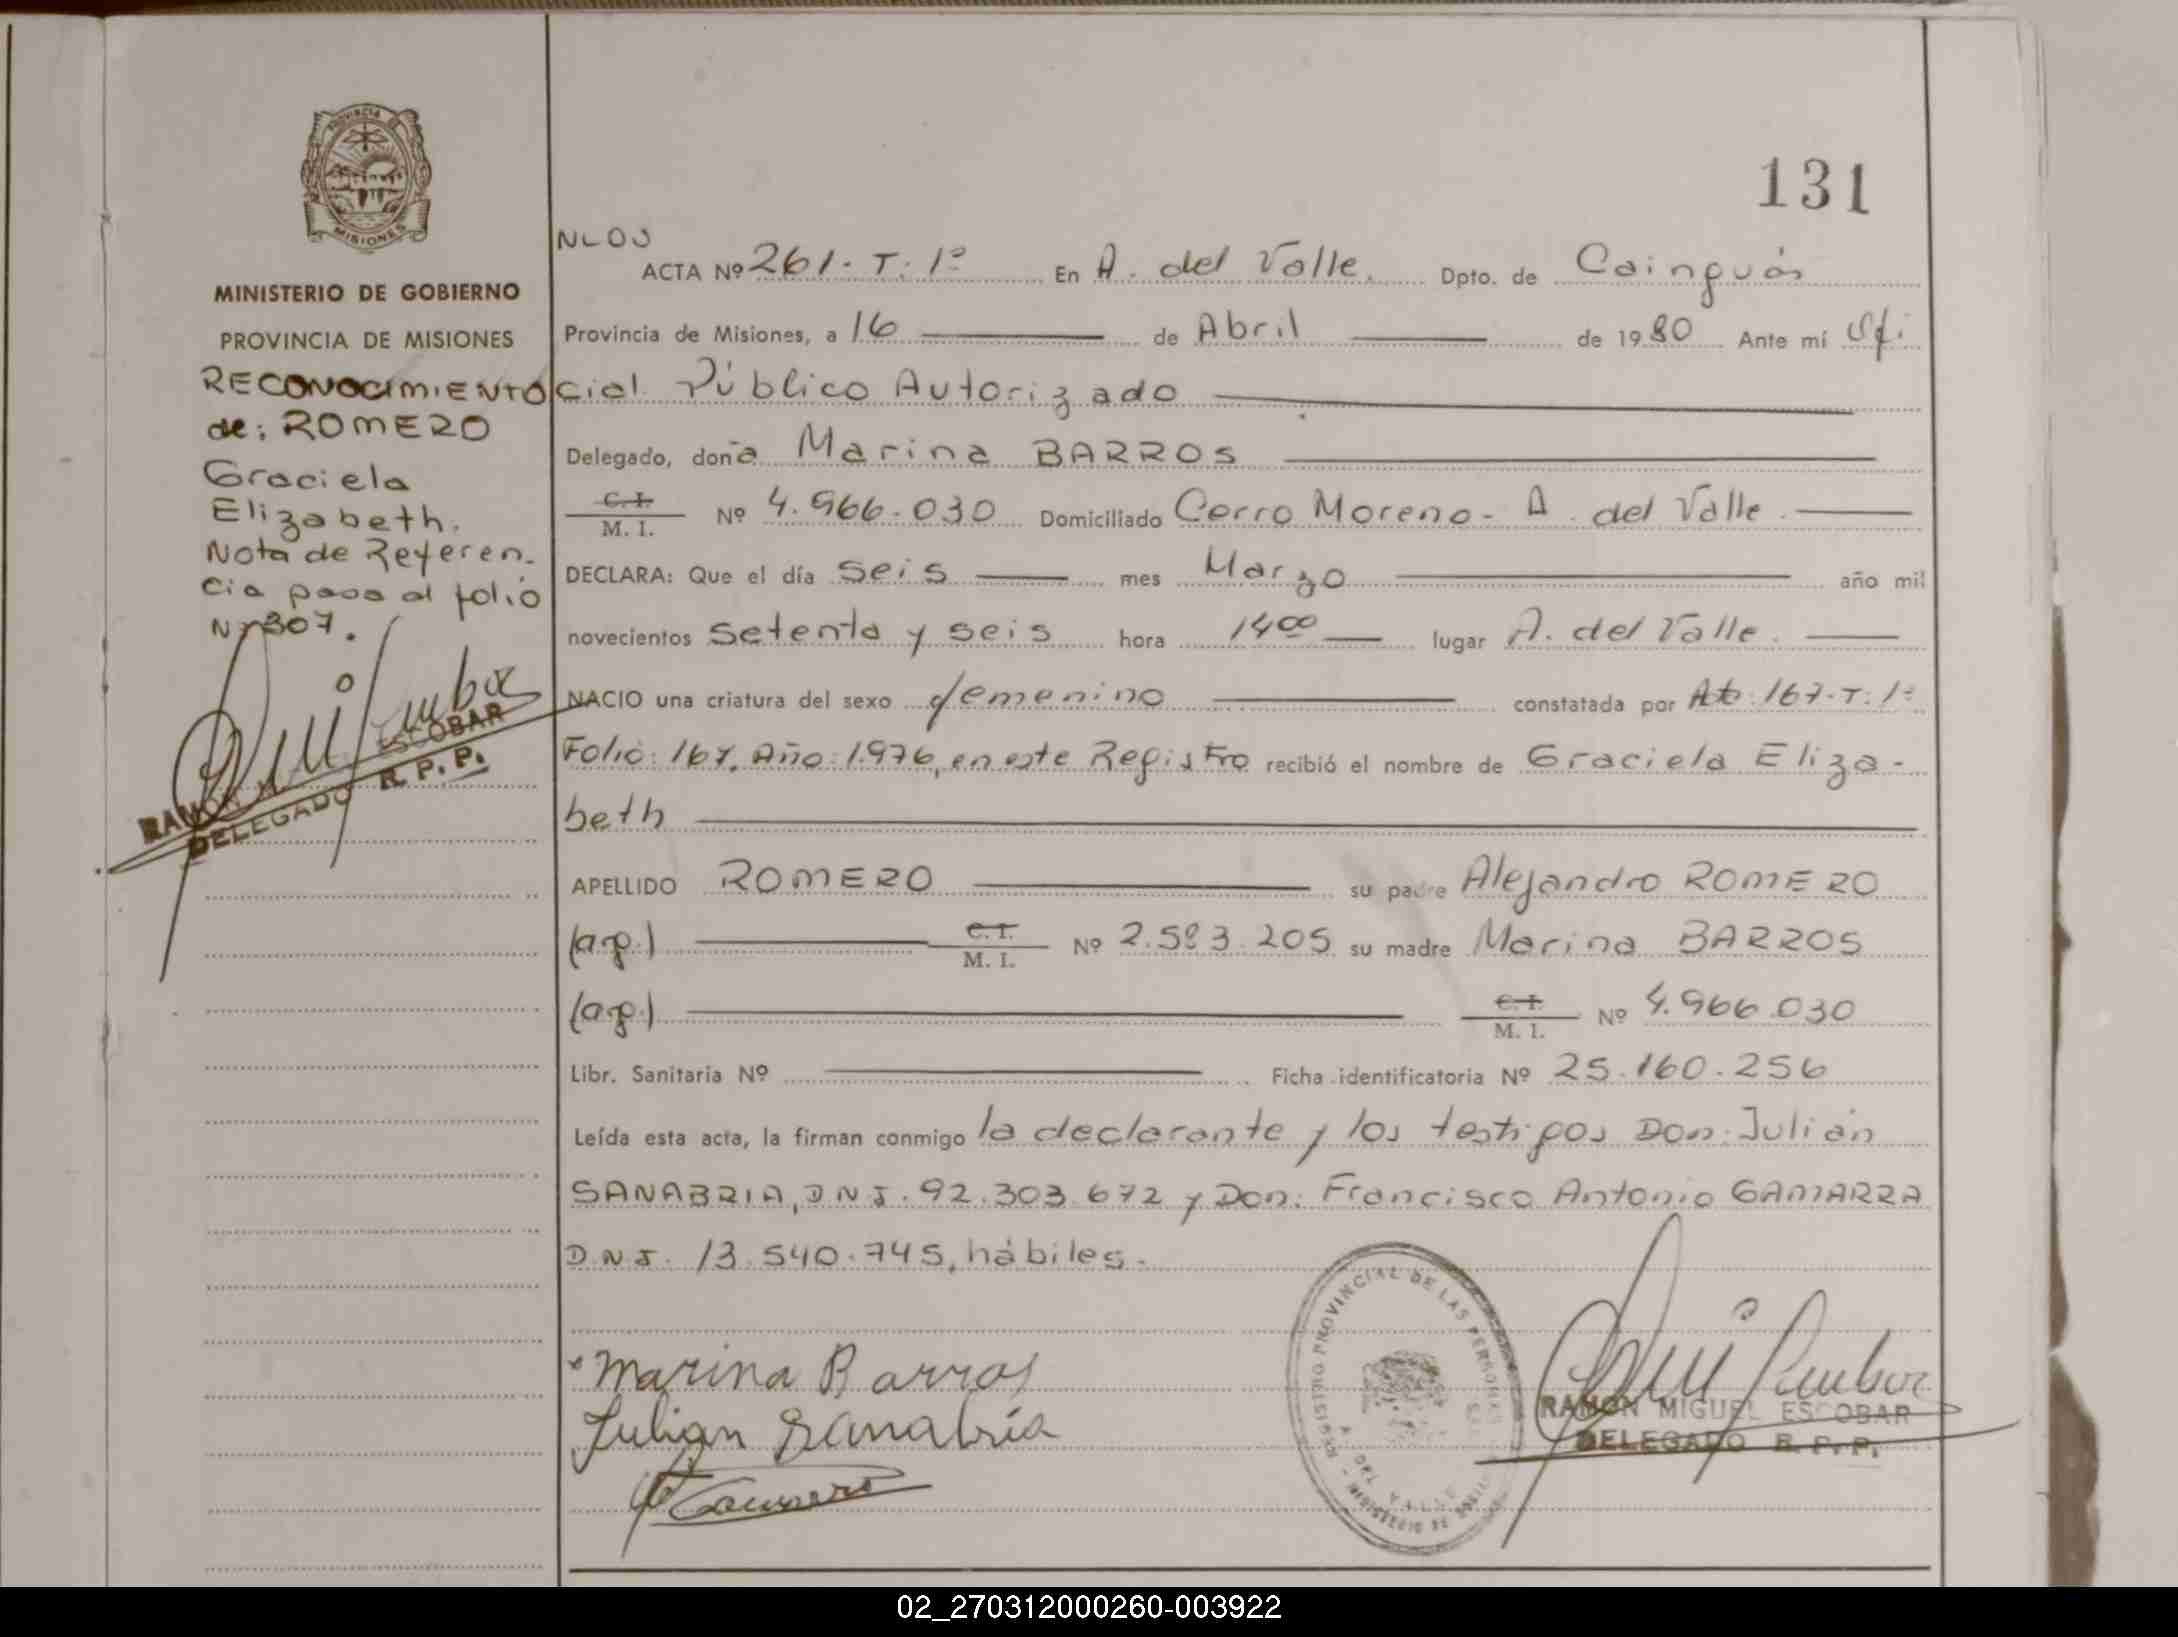 131
PROVINCIA DE
MISIONES
MINISTERIO DE GOBIERNO
PROVINCIA DE MISIONES
RECONOCIMIENTO
de: ROMERO
Graciela
Elizabeth.
Nota de Referen-
cia pasa al folio
Nº 307.
RAMON M ESCOBAR
DELEGADO R. P. P.
ACTA Nº 261. T. 1º En A. del Valle. Dpto. de Cainguás
Provincia de Misiones, a 16 de Abril de 1980 Ante mí Ofi
cial Público Autorizado
Delegado, doña Marina BARROS
C. I.
M. I. Nº 4.966.030 Domiciliado Cerro Moreno - A. del Valle.
DECLARA: Que el día seis mes Marzo año mil
novecientos setenta y seis hora 14 00 lugar A. del Valle.
NACIO una criatura del sexo femenino constatada por Ac 167. T. 1º
Folio: 167. Año: 1.976, en este Registro recibió el nombre de Graciela Eliza-
beth
APELLIDO ROMERO su padre Alejandro ROMERO
(ap.) C. I.
M. I. Nº 2.583.205 su madre Marina BARROS
(ap.) C. I.
M. I. Nº 4.966.030
Libr. Sanitaria Nº Ficha identificatoria Nº 25.160.256
Leída esta acta, la firman conmigo la declarante y los testigos Don: Julián
SANABRIA, D.N.I. 92.303.672 y Don: Francisco Antonio GAMARRA
D.N.I. 13.540.745, hábiles.
Marina Barros
Julian Sanabria
REGISTRO PROVINCIAL DE LAS PERSONAS
A. DEL VALLE
RAMON MIGUEL ESCOBAR
DELEGADO R. P. P.
02_270312000260-003922